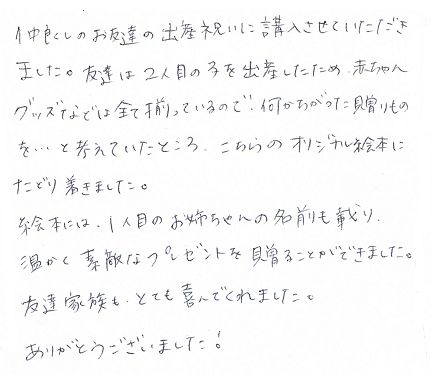 仲良しのお友達の出産祝いに購入させていただき
ました。友達は2人目の子を出産したため、赤ちゃん
グッズなどは全て揃っているので、何かちがった贈りもの
を…と考えていたところ、こちらのオリジナル絵本に
たどり着きました。
絵本には、1人目のお姉ちゃんの名前も載り、
温かく素敵なプレゼントを贈ることができました。
友達家族も、とても喜んでくれました。
ありがとうございました!